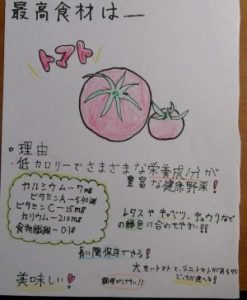 最高食材は――
トマト
・理由
・低カロリーでさまざまな栄養成分が
豊富な健康野菜！
カルシウムー7mg
ビタミンA－540
ビタミンC－15mg
カリウムー210mg
食物繊維－
レタスやキャベツ、キュウリなど
の緑色に合わせやすい!!
長い間保存できる！
美味しい！
大きいトマトと、ミニトマトがあるから
どっちが食べる!!